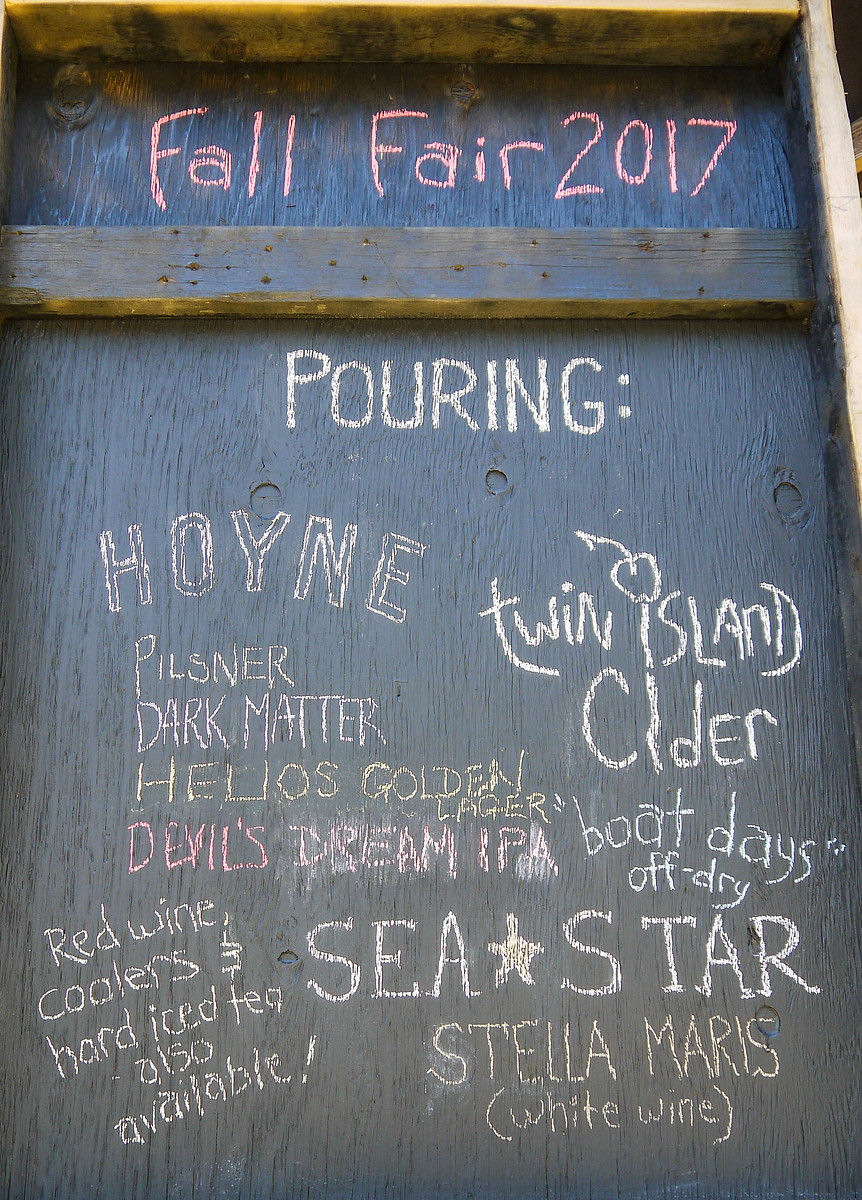 Fall Fair 2017
POURING:
HOYNE
PILSNER
DARK MATTER
HELIOS GOLDEN
LAGER
DEVIL'S DREAM IPA
twin ISLAND
CIder
"boat days"
off-dry
SEA STAR
STELLA MARIS
(white wine)
Red wine,
coolers &
hard iced tea
also
available!